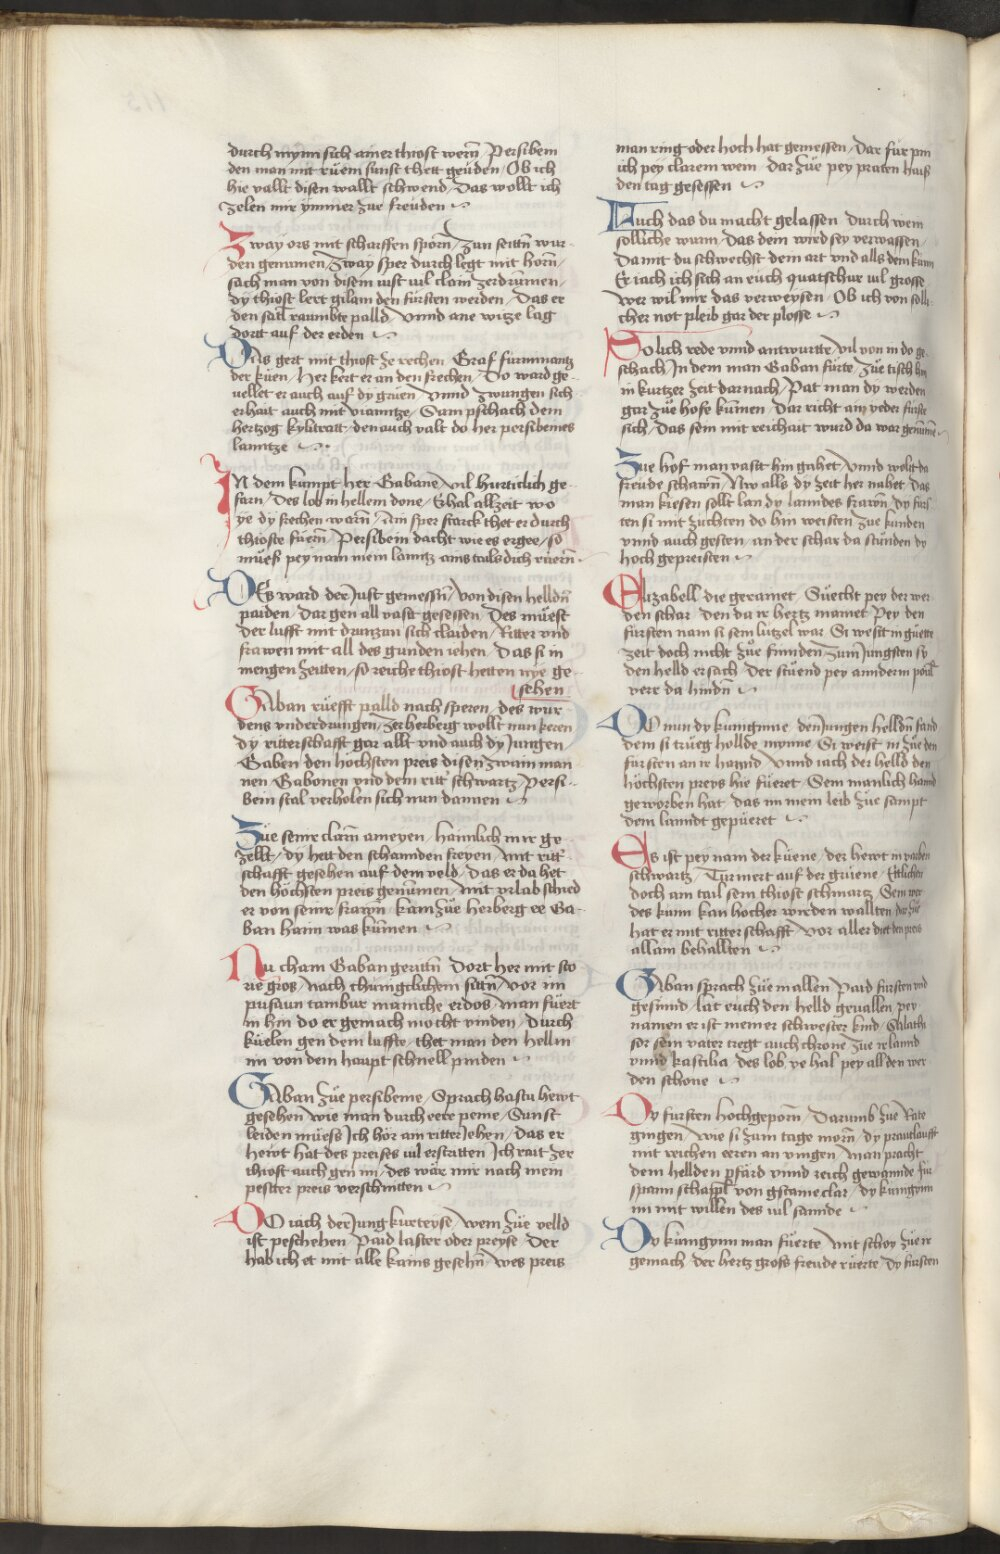 durch mynn sich ainer thiost wern / Persibein
den man mit rüem sunst thett geüden / Ob ich
hie vallt disen wallt schwend / Das wollt ich
zelen mir ymmer zue freuden
Zway ors mit scharffen sporn / Zun seittn wur
den genumen / Zway sper durch legt mit horn /
sach man von disem iust vil clain zerdrumen /
dy thiost lert gilam den fürsten werden / Das er
den satl raumbte palld / Vnnd ane witze lag
dortt auf der erden
Das gert mit thiost ze rechen Graf fürminantz
der küen / Her kert er an den frechen / Do ward ge
uellet er auch auf dy gruen / Vnnd zwungen sich
erhait auch mit vianntze / Sam pschach dem
hertzog kylitratt / den auch valt do her persibemes
lanntze
In dem kumpt her Gabane vil hurticlich ge
farn / Des lob in hellem done / Erhal allzeit wo
ye dy frechen warn / Ain sper starck thet er durch
thioste fuern / Persibein dacht wie es ergee / so
mues pey nam mein lanntz ains tails dich ruern
Es ward der Just gemessn / von disen helldn
paiden / Dar gen all vasst gesessen / Des müest
der lufft mit drunzun sich claiden / Ritter vnd
frawen mit all des gunden iehen / Das si in
mengen zeitten / so reiche thiost hetten nye ge
sehen
Gaban rüefft palld nach speren / des wur
dens vnderdrungen / Zer herberg wollt man keren
dy ritterschafft gar allt vnd auch dy Jungen
Gaben den hochsten preis disen zwain man
nen Gabonen vnd dem ritt schwartz / Persi
bein stal verholen sich nun dannen
Zue seinr clarn ameyen / haimlich mir ge
zellt / dy hett den schannden freyen / mit ritt
schafft gesehen auf dem veld / das er da het
den höchsten preis genumen / mit vrlab schied
er von seinr frawn / kam zue herberg ee Ga
ban haim was kumen
Nu cham Gaban geritn Dort her mit sto
rie gros / nach chunigclichem sittn / vor im
pusaun tambur maniche erdos / man füert
in hin do er gemach mocht vinden / Durch
küelen gen dem luffte / thet man den hellm
im von dem haupt schnell pinden
Gaban zue persibeme / Sprach hastu hewt
gesehen wie man durch eere peine / Sunst
leiden müess Ich hör ain ritter Jehen / das er
hewt hat des preises vil erstritten Ich rait zer
thiost auch gen im / des wär mir nach mein
pester preis verschnitten
Do iach der Jung kurteyse / wem zue velld
ist peschehen / Paid laster oder preyse / Der
hab ich et mit alle kains gesehn / wes preis
man ring oder hoch hat gemessen / Dar für pin
ich pey clarem wein dar zue pey praten haiß
den tag gesessen
Auch das du macht gelassen durch wein
solliche wunn / das dem wird sey verwassen /
Damit du schwechst dem art vnd alls dein künn
Er iach ich sich an euch quatschur vil grosse
wer wil mir das verweysen / Ob ich von soli
cher not pleib gar der plosse
Solich rede vnnd antwurtte / vil von in do ge
schach / In dem man Gaban fürte / Zue tisch hin
in kurtzer zeit darnach / Pat man dy werden
gar zue hofe kumen / Dar richt ain yeder fürste
sich / Das sein mit reichait wurd da war genumen
Zue hof man vasst hin gahet / vnnd wollt da
freude schawn / Nw alls dy zeit her nahet / das
man kiesen sollt lan dy lanndes frawn / dy für
ten si mit zuchten do hin weisten / Zue kunden
vnnd auch gesten / an der schar da stunden dy
hoch gepreisten
Elizabell die geramet / Süecht pey der wer
den schar / den da ir hertz mainet / Pey den
fürsten nam si sein lutzel war / Si wesst in guette
zeit doch nicht zue finnden / zum Jungsten sy
den helld ersach / der stüend pey annderm pouel
verr da hindn
Do nun dy kunigynne den Jungen helldn fand
dem si trüeg hollde mynne / Si weist in zue den
fürsten an ir hannd / Vnnd iach der helld den
höchsten preys hie füeret / Sein manlich hannd
geworben hat das im mein leib zue sampt
dem lanndt gepüeret
Es ist pey nam der küene / der hewt in wappen
schwartz / Turniert auf der grüene / Ettlicher
doch am tail sein thiost schmartz / Sein wir
des kunn kan hocher wirden wallten / dar zue
hat er mit ritterschafft / vor aller diet den preis
allain behallten
Gaban sprach zue in allen / Paid fürsten vnd
gesinnd / lat euch den helld geuallen / pey
namen er ist meiner schwester kind / Galath
sor sein vater tregt auch chrone / Zue irlannd
vnnd kastilia / des lob ye hal pey all den wer
den schone
Dy fürsten hochgeporn / Darumb zue Rate
gingen / wie si zum tage morn / dy prautlaufft
mit reichen eeren an vingen / man pracht
dem hellden pfärd vnnd reich gewannde / für
spann schappl von gstaine clar / dy kunigynn
im mit willen des vil sannde
Dy kunigynn man füerte / mit schoy zue ir
gemach / der hertz gross freude rüerte / dy fürsten